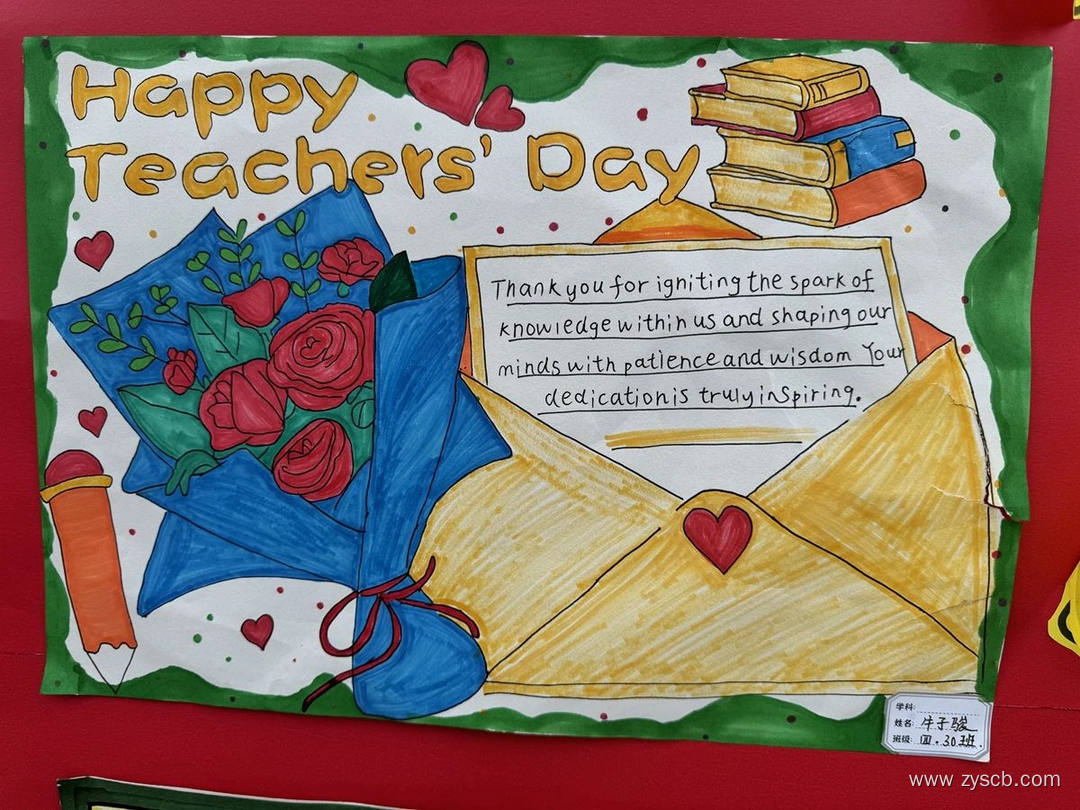 Happy
Teachers' Day
Thank you for igniting the spark of
knowledge within us and shaping our
minds with patience and wisdom Your
dedication is truly inspiring.
学科:
姓名: 牛子骏
班级: 四.30班.
www.zyscb.com